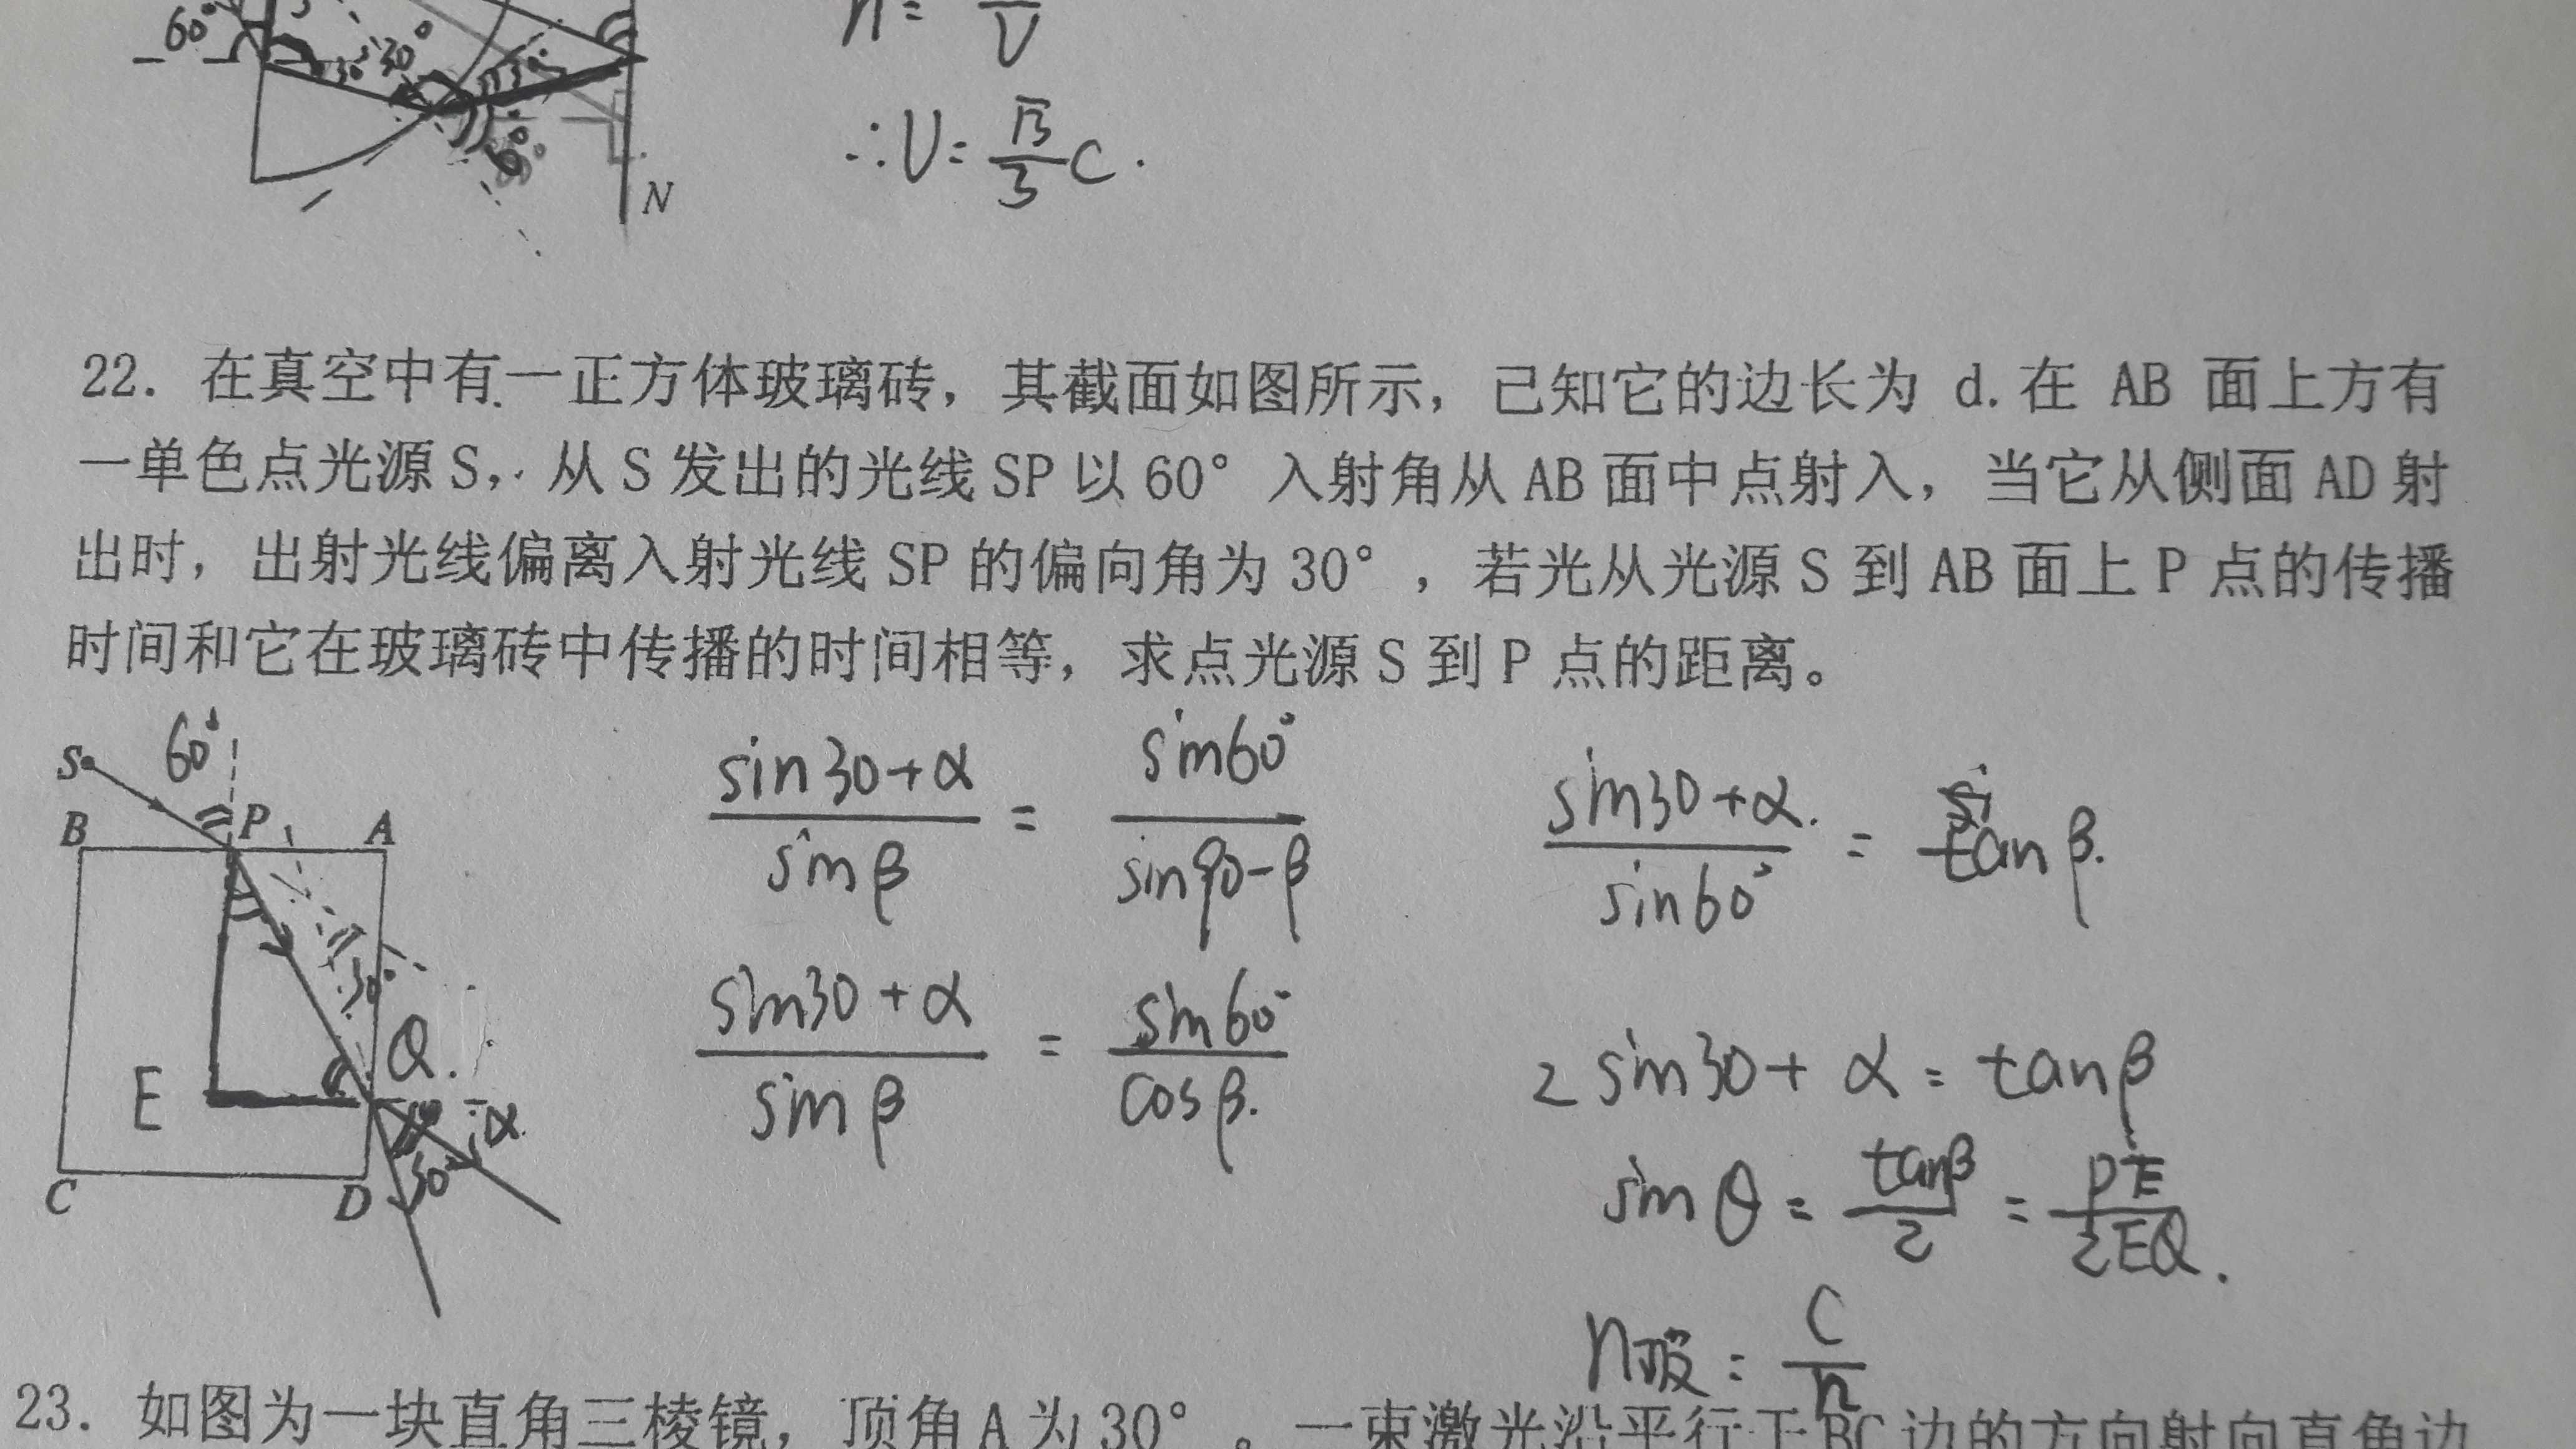 60°
30°
n=
V
∴V=√3/3 C.
N
22. 在真空中有一正方体玻璃砖，其截面如图所示，己知它的边长为 d.在 AB 面上方有
一单色点光源S，从S发出的光线SP以60°入射角从AB面中点射入，当它从侧面AD射
出时，出射光线偏离入射光线SP的偏向角为30°，若光从光源S到AB面上P点的传播
时间和它在玻璃砖中传播的时间相等，求点光源S到P点的距离。
S 60°
B P A
30°
E Q.
α
30°
C D
sin30+α / sinβ = sin60° / sin90-β
sin30+α. / sin60° = tanβ.
sin30+α / sinβ = sin60° / cosβ.
2 sin30+α = tanβ
sinθ = tanβ / 2 = PE / 2EQ.
n玻 = C / n
23. 如图为一块直角三棱镜，顶角A为30°。一束激光沿平行于BC边的方向射向直角边